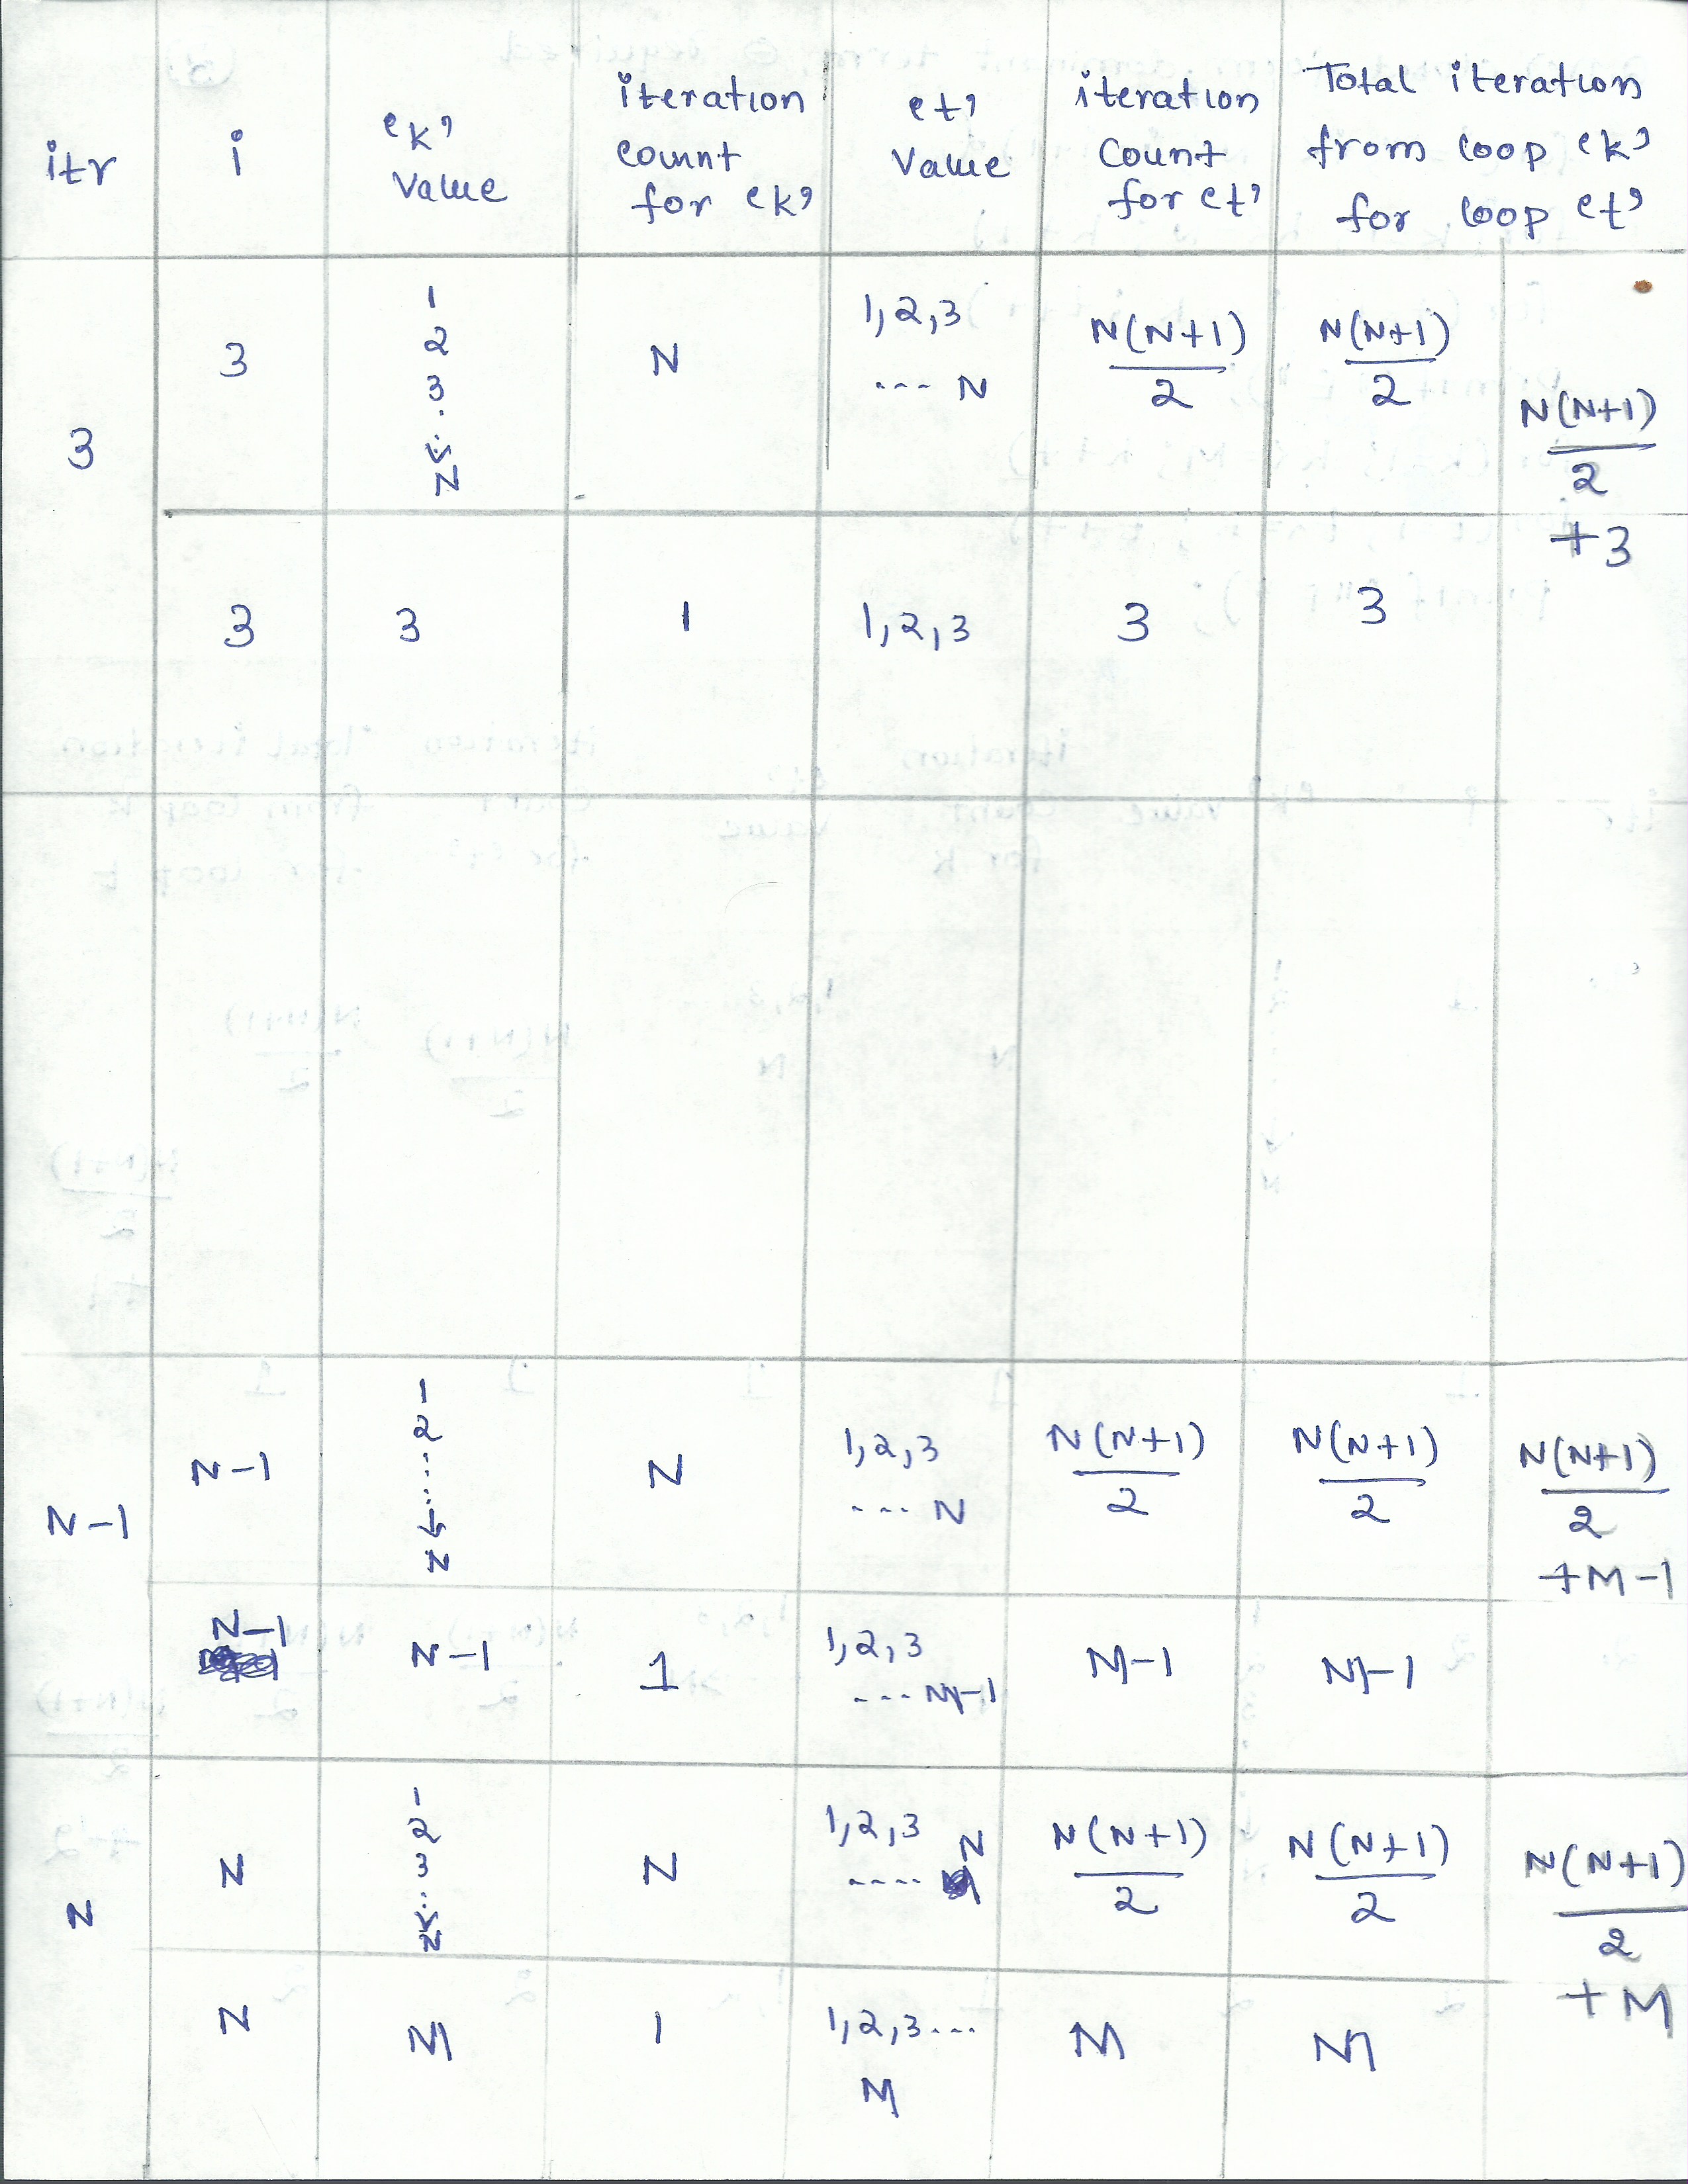 itr
i
'k'
Value
iteration
count
for 'k'
't'
Value
iteration
Count
for 't'
Total iteration
from loop 'k'
for loop 't'
3
3
1
2
3
N
N
1,2,3
--- N
N(N+1)
2
N(N+1)
2
N(N+1)
2
+3
3
3
1
1,2,3
3
3
N-1
N-1
1
2
N
N
1,2,3
--- N
N(N+1)
2
N(N+1)
2
N(N+1)
2
+M-1
N-1
N-1
1
1,2,3
--- M-1
M-1
M-1
N
N
1
2
3
N
N
1,2,3
---- N
N(N+1)
2
N(N+1)
2
N(N+1)
2
+M
N
M
1
1,2,3---
M
M
M